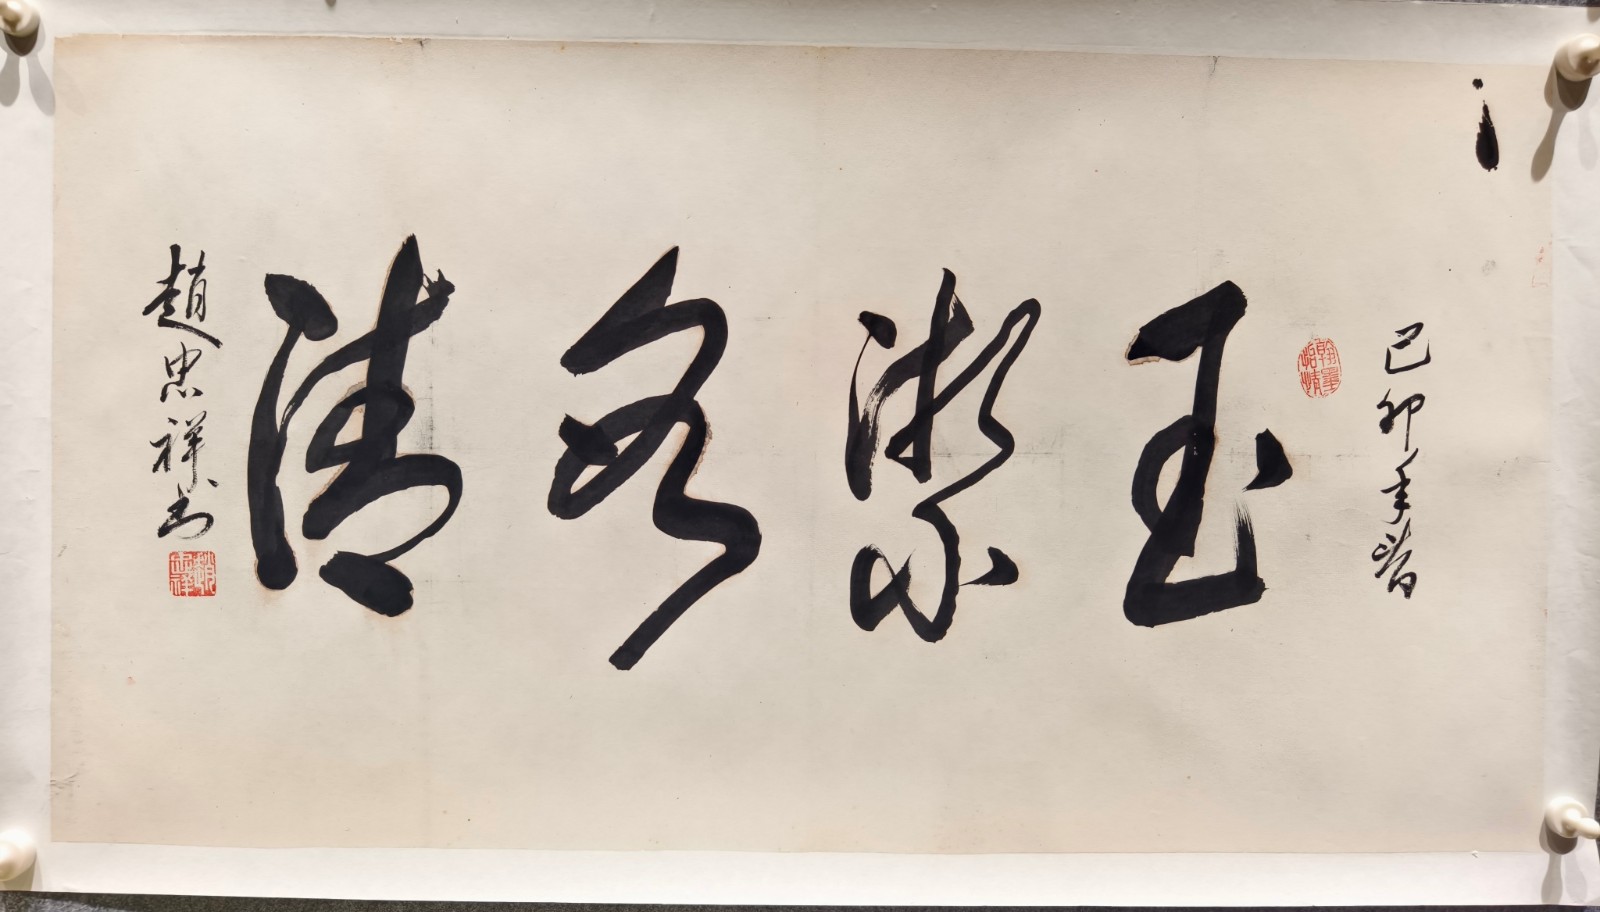 己卯年春
玉潔冰清
趙忠祥書
趙忠祥